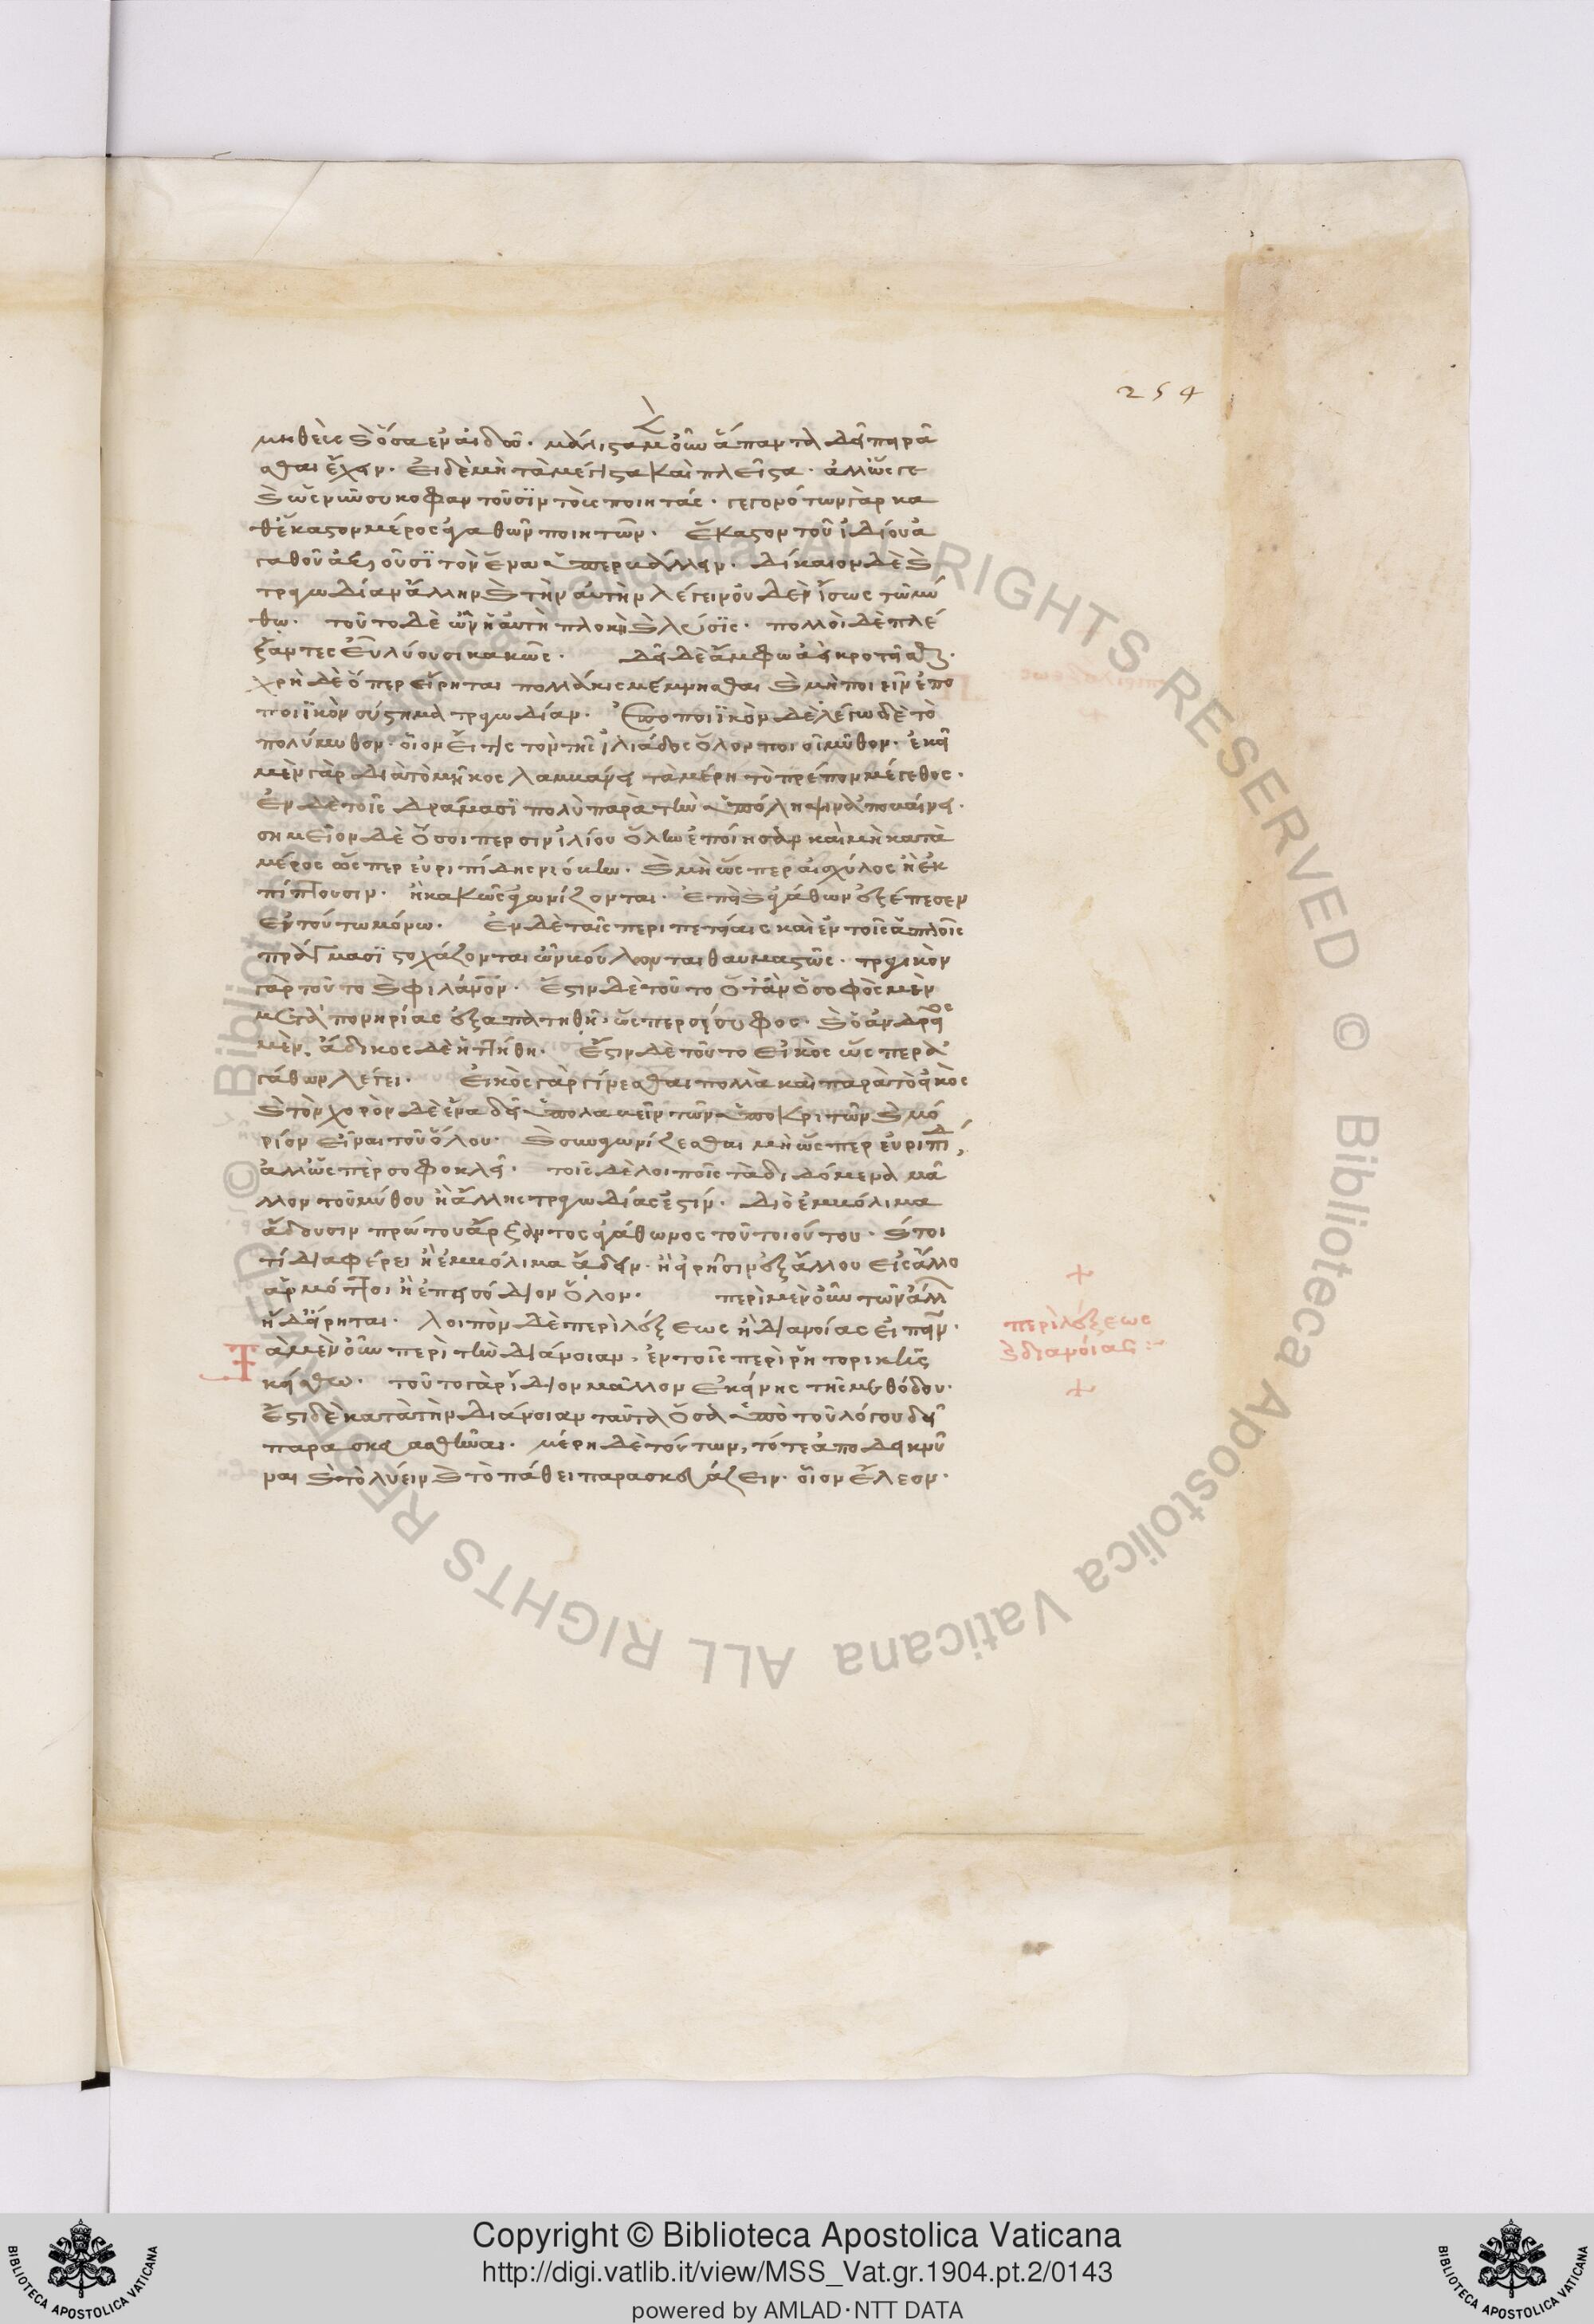 254
μηθεὶς καὶ ὅσα ἐν ἅιδου· μάλιστα μὲν οὖν ἅπαντα δεῖ πειρᾶ
σθαι ἔχειν· εἰ δὲ μὴ τὰ μέγιστα καὶ πλεῖστα· ἄλλως τε
καὶ ὡς νῦν συκοφαντοῦσϊν τοὺς ποιητάς· γεγονότων γὰρ κα
θ' ἕκαστον μέρος ἀγαθῶν ποιητῶν· ἕκαστον τοῦ ἰδίου ἀ
γαθοῦ ἀξιοῦσϊ τὸν ἕνα ὑπερβάλλειν· δίκαιον δὲ καὶ
τραγωδίαν ἄλλην καὶ τὴν αὐτὴν λέγειν οὐδὲν ἴσως τῶ μύ
θω· τοῦτο δὲ ὧν ἡ αὐτὴ πλοκὴ καὶ λύσϊς· πολλοὶ δὲ πλέ
ξαντες εὖ λύουσι κακῶς· δεῖ δὲ ἄμφω ἀεὶ κροτεῖσθαι·
χρὴ δὲ ὅπερ εἴρηται πολλάκις μεμνῆσθαι καὶ μὴ ποιεῖν ἐπο
ποιϊκὸν σύστημα τραγωδίαν· ἐποποιϊκὸν δὲ λέγω δὲ τὸ
πολύμυθον· οἷον εἴ τις τὸν τῆς ἰλιάδος ὅλον ποιοῖ μῦθον· ἐκεῖ
μὲν γὰρ διὰ τὸ μῆκος λαμβάνει τὰ μέρη τὸ πρέπον μέγεθος·
ἐν δὲ τοῖς δράμασϊ πολὺ παρὰ τὴν ὑπόληψιν ἀποβαίνει·
σημεῖον δὲ ὅσοι περσιν ἰλίου ὅλην ἐποίησαν καὶ μὴ κατὰ
μέρος ὥσπερ εὐριπίδης νιόβην· καὶ μὴ ὥσπερ αἰσχύλος ἢ ἐκ
πίπτουσιν· ἢ κακῶς ἀγωνίζονται· ἐπεὶ καὶ ἀγάθων ἐξέπεσεν
ἐν τούτω μόνω· ἐν δὲ ταῖς περιπετείαις καὶ ἐν τοῖς ἁπλοῖς
πράγμασϊ στοχάζονται ὧν βούλονται θαυμαστῶς· τραγικὸν
γὰρ τοῦτο καὶ φιλάνον· ἔστιν δὲ τοῦτο ὅταν ὁ σοφὸς μὲν
μετὰ πονηρίας ἐξαπατηθῆ· ὥσπερ σίσυφος· καὶ ὁ ἀνδρεῖος
μὲν. ἄδικος δὲ ἡττήθη· ἔστιν δὲ τοῦτο εἰκὸς ὥσπερ ἀ
γάθων λέγει· εἰκὸς γὰρ γίνεσθαι πολλὰ καὶ παρὰ τὸ εἰκός
καὶ τὸν χορὸν δὲ ἕνα δεῖ ὑπολαβεῖν τῶν ὑποκριτῶν καὶ μό
ριον εἶναι τοῦ ὅλου· καὶ συναγωνίζεσθαι μὴ ὥσπερ εὐριπίδ
ἀλλ' ὥσπερ σοφοκλεῖ· τοῖς δὲ λοιποῖς τὰ διδόμενα μᾶ
λλον τοῦ μύθου ἢ ἄλλης τραγωδίας ἐστίν· διὸ ἐμβόλιμα
ἄδουσιν πρώτου ἄρξαντος ἀγάθωνος τοῦ τοιούτου· καίτοι
τί διαφέρει ἢ ἐμβόλιμα ἄδειν· ἢ εἰ ῥῆσιν ἐξ ἄλλου εἰς ἄλλο
ἁρμόττοι ἢ ἐπεισόδιον ὅλον· περὶ μὲν οὖν τῶν ἄλλ
ἤδ' εἴρηται· λοιπὸν δὲ περὶ λέξεως ἢ διανοίας εἰπεῖν·
Τὰ μὲν οὖν περὶ τὴν διάνοιαν, ἐν τοῖς περὶ ῥητορικῆς
κείσθω· τοῦτο γὰρ ἴδιον μᾶλλον ἐκείνης τῆς μεθόδου·
ἔστι δὲ κατὰ τὴν διάνοιαν ταῦτα ὅσα ὑπὸ τοῦ λόγου δεῖ
παρασκευασθῆναι· μέρη δὲ τούτων, τό τε ἀποδεικνύ
ναι καὶ τὸ λύειν καὶ τὸ πάθει παρασκευάζειν· οἷον ἔλεον·
περὶ λέξεως
καὶ διανοίας:
Copyright © Biblioteca Apostolica Vaticana
http://digi.vatlib.it/view/MSS_Vat.gr.1904.pt.2/0143
powered by AMLAD·NTT DATA
BIBLIOTECA APOSTOLICA VATICANA
BIBLIOTECA APOSTOLICA VATICANA
© Biblioteca Apostolica Vaticana ALL RIGHTS RESERVED
© Biblioteca Apostolica Vaticana ALL RIGHTS RESERVED